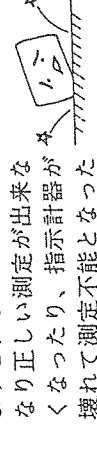 なり正しい測定が出来な
くなったり、指示計器が
壊れて測定不能となった